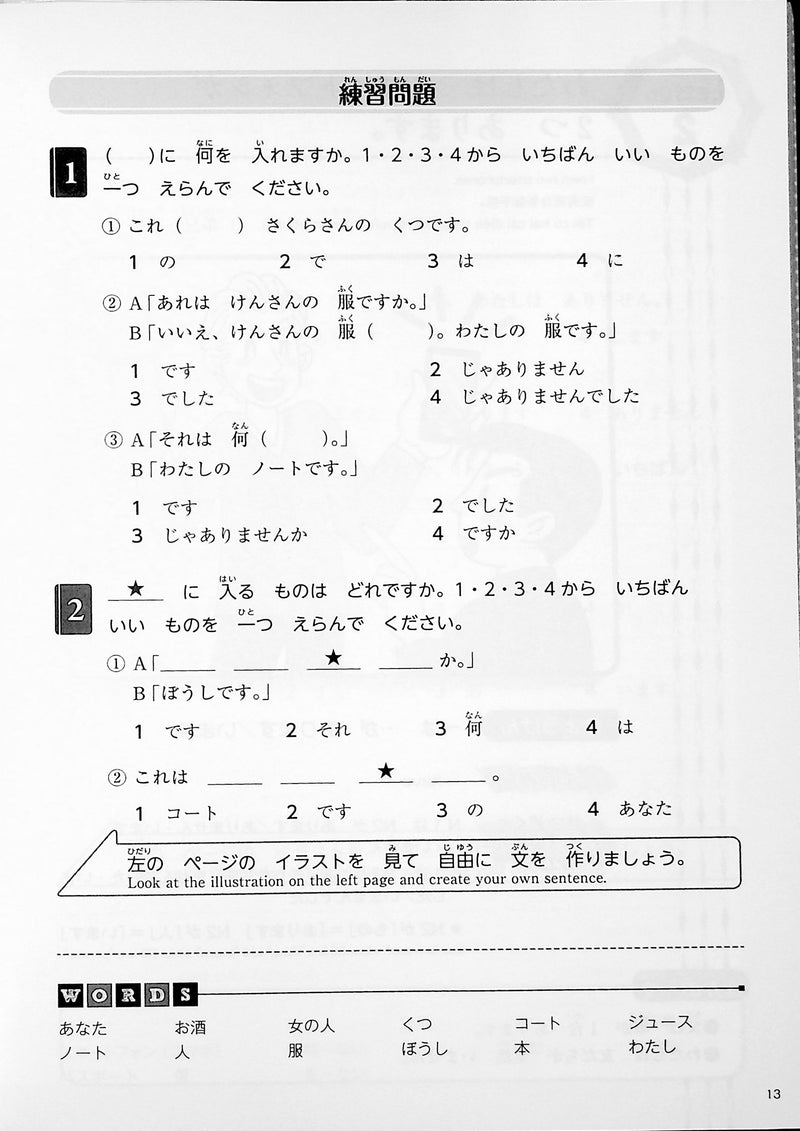 練習問題
1 ( )に 何を 入れますか。1・2・3・4から いちばん いい ものを
一つ えらんで ください。
① これ ( ) さくらさんの くつです。
1 の 2 で 3 は 4 に
② A「あれは けんさんの 服ですか。」
B「いいえ、けんさんの 服 ( )。わたしの 服です。」
1 です 2 じゃありません
3 でした 4 じゃありませんでした
③ A「それは 何 ( )。」
B「わたしの ノートです。」
1 です 2 でした
3 じゃありませんか 4 ですか
2 __★__ に 入る ものは どれですか。1・2・3・4から いちばん
いい ものを 一つ えらんで ください。
① A「_____ _____ __★__ _____ か。」
B「ぼうしです。」
1 です 2 それ 3 何 4 は
② これは _____ _____ __★__ _____ 。
1 コート 2 です 3 の 4 あなた
左の ページの イラストを 見て 自由に 文を 作りましょう。
Look at the illustration on the left page and create your own sentence.
WORDS
あなた お酒 女の人 くつ コート ジュース
ノート 人 服 ぼうし 本 わたし
13